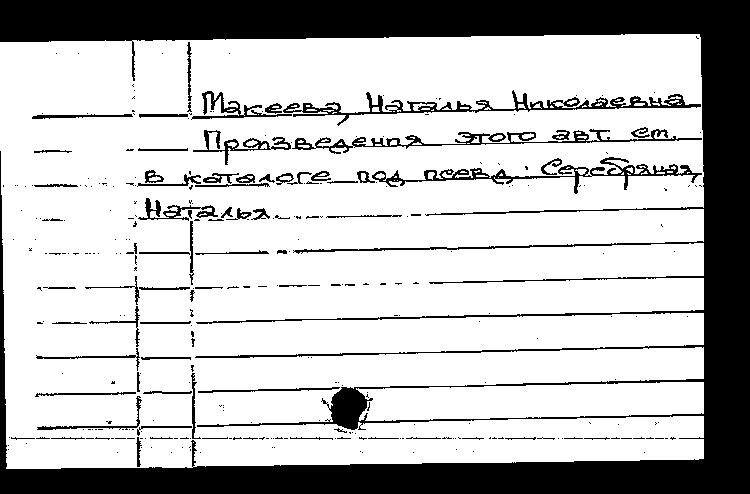 Макеева, Наталья Николаевна
Произведения этого авт. см.
в каталоге под псевд: Серебряная,
Наталья.